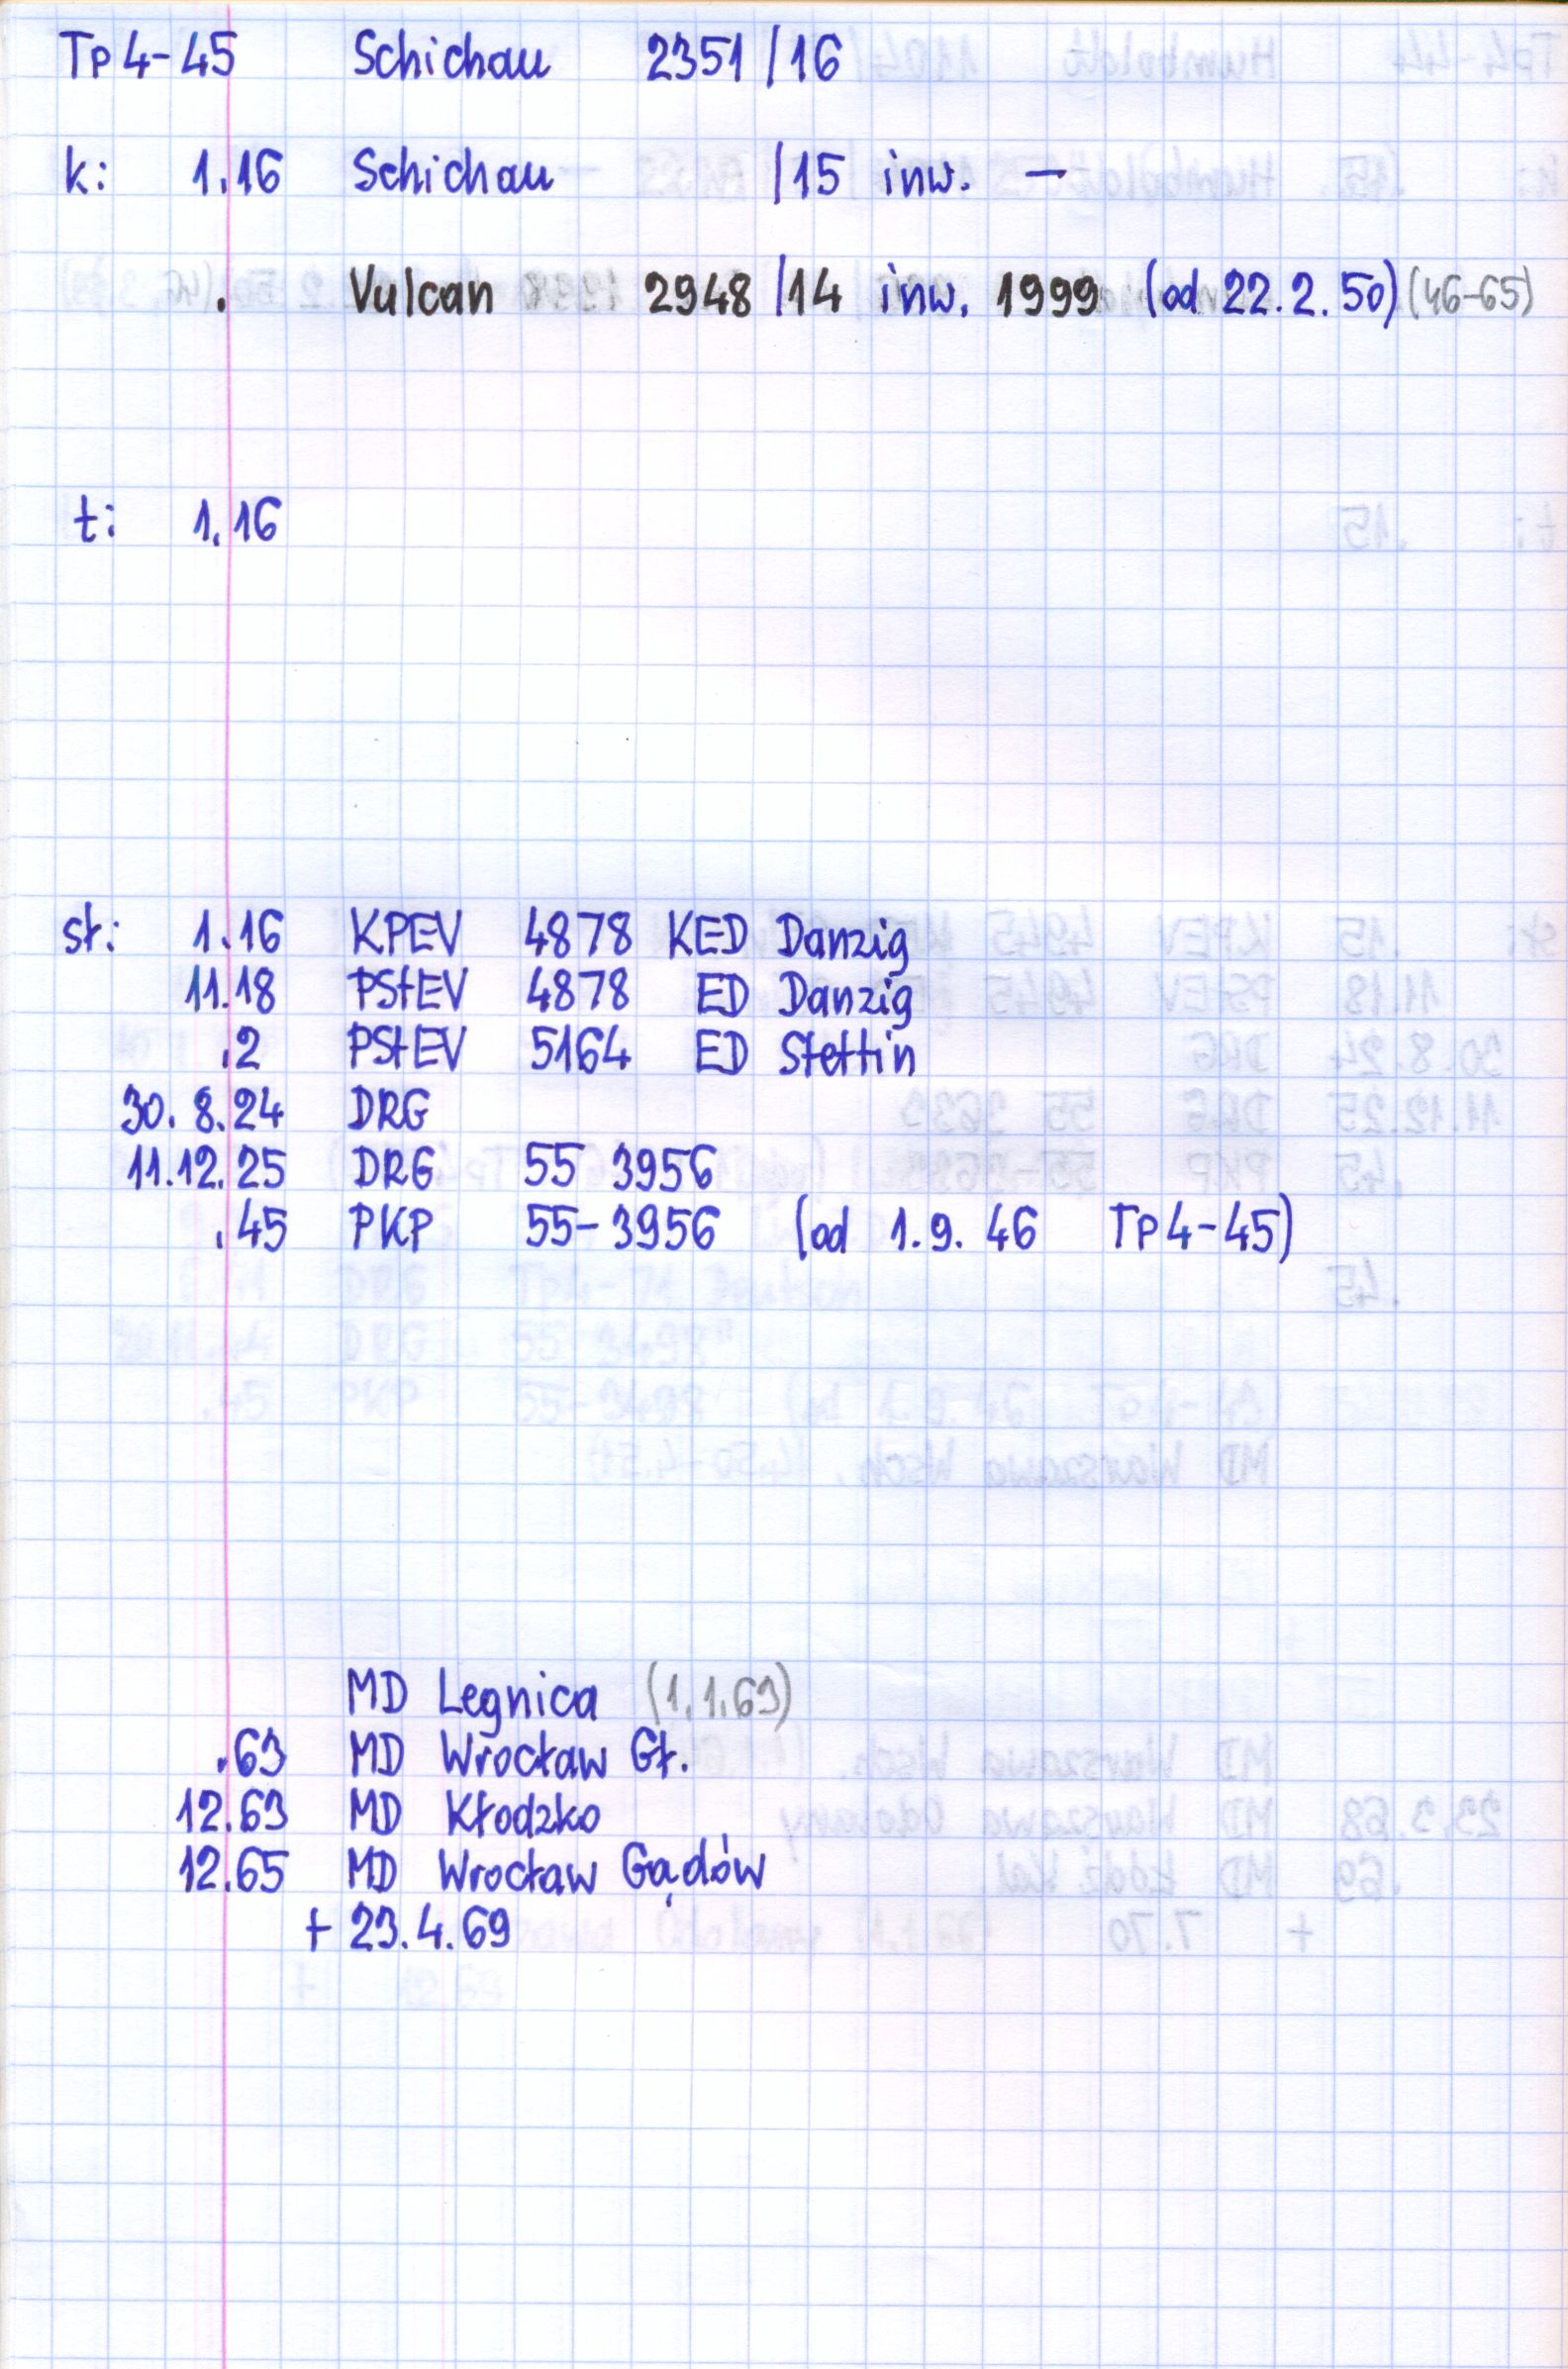 Tp4-45 Schichau 2351/16
k: 1.16 Schichau /15 inw. -
. Vulcan 2948/14 inw. 1999 (od 22.2.50) (46-65)
t: 1.16
st: 1.16 KPEV 4878 KED Danzig
11.18 PStEV 4878 ED Danzig
.2 PStEV 5164 ED Stettin
30.8.24 DRG
11.12.25 DRG 55 3956
.45 PKP 55-3956 (od 1.9.46 Tp4-45)
MD Legnica (1.1.63)
.63 MD Wrocław Gł.
12.63 MD Kłodzko
12.65 MD Wrocław Gądów
+ 23.4.69